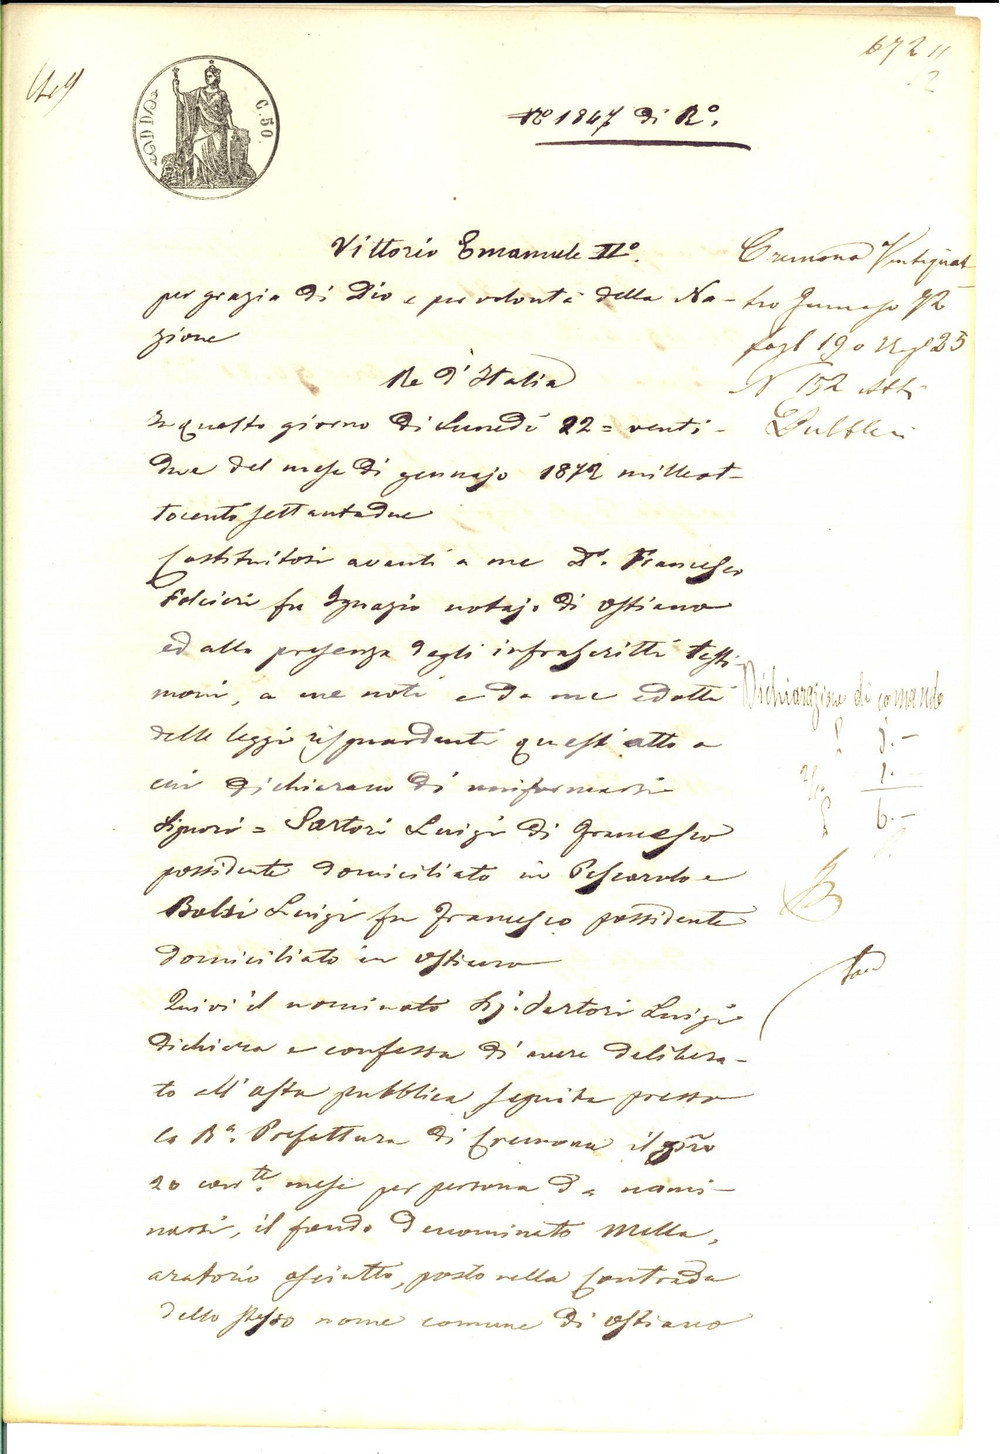 672
C. 50.
N° 1847 di R°.
Vittorio Emanuele II°.
per grazia di Dio e per volontà della Na-
zione
Re d'Italia
In questo giorno di Lunedì 22 = venti-
due del mese di gennajo 1872 milleot-
tocentosettantadue
Costituitosi avanti a me Dr. Francesco
Folcieri fu Ignazio notajo di Ostiano
ed alla presenza degli infrascritti testi-
moni, a me noti e da me edotti
delle leggi risguardanti quest'atto a
cui dichiarano di uniformarsi
Signori = Sartori Luigi di Francesco
possidente domiciliato in Pescarolo e
Balsi Luigi fu Francesco possidente
domiciliato in Ostiano
Quivi il nominato Sig. Sartori Luigi
dichiara e confessa di avere delibera-
to all'asta pubblica seguita presso
la Ra. Prefettura di Cremona il giorno
20 corrte. mese per persona da nomi-
narsi, il fondo denominato Mella,
aratorio asciutto, posto nella Contrada
dello stesso nome comune di Ostiano
Cremona Ventiquat-
tro Gennajo 72
fogl 190 Reg 25
N 152 Atti
Pubblici
Dichiarazione di comando
L 5.-
1.-
L 6.-